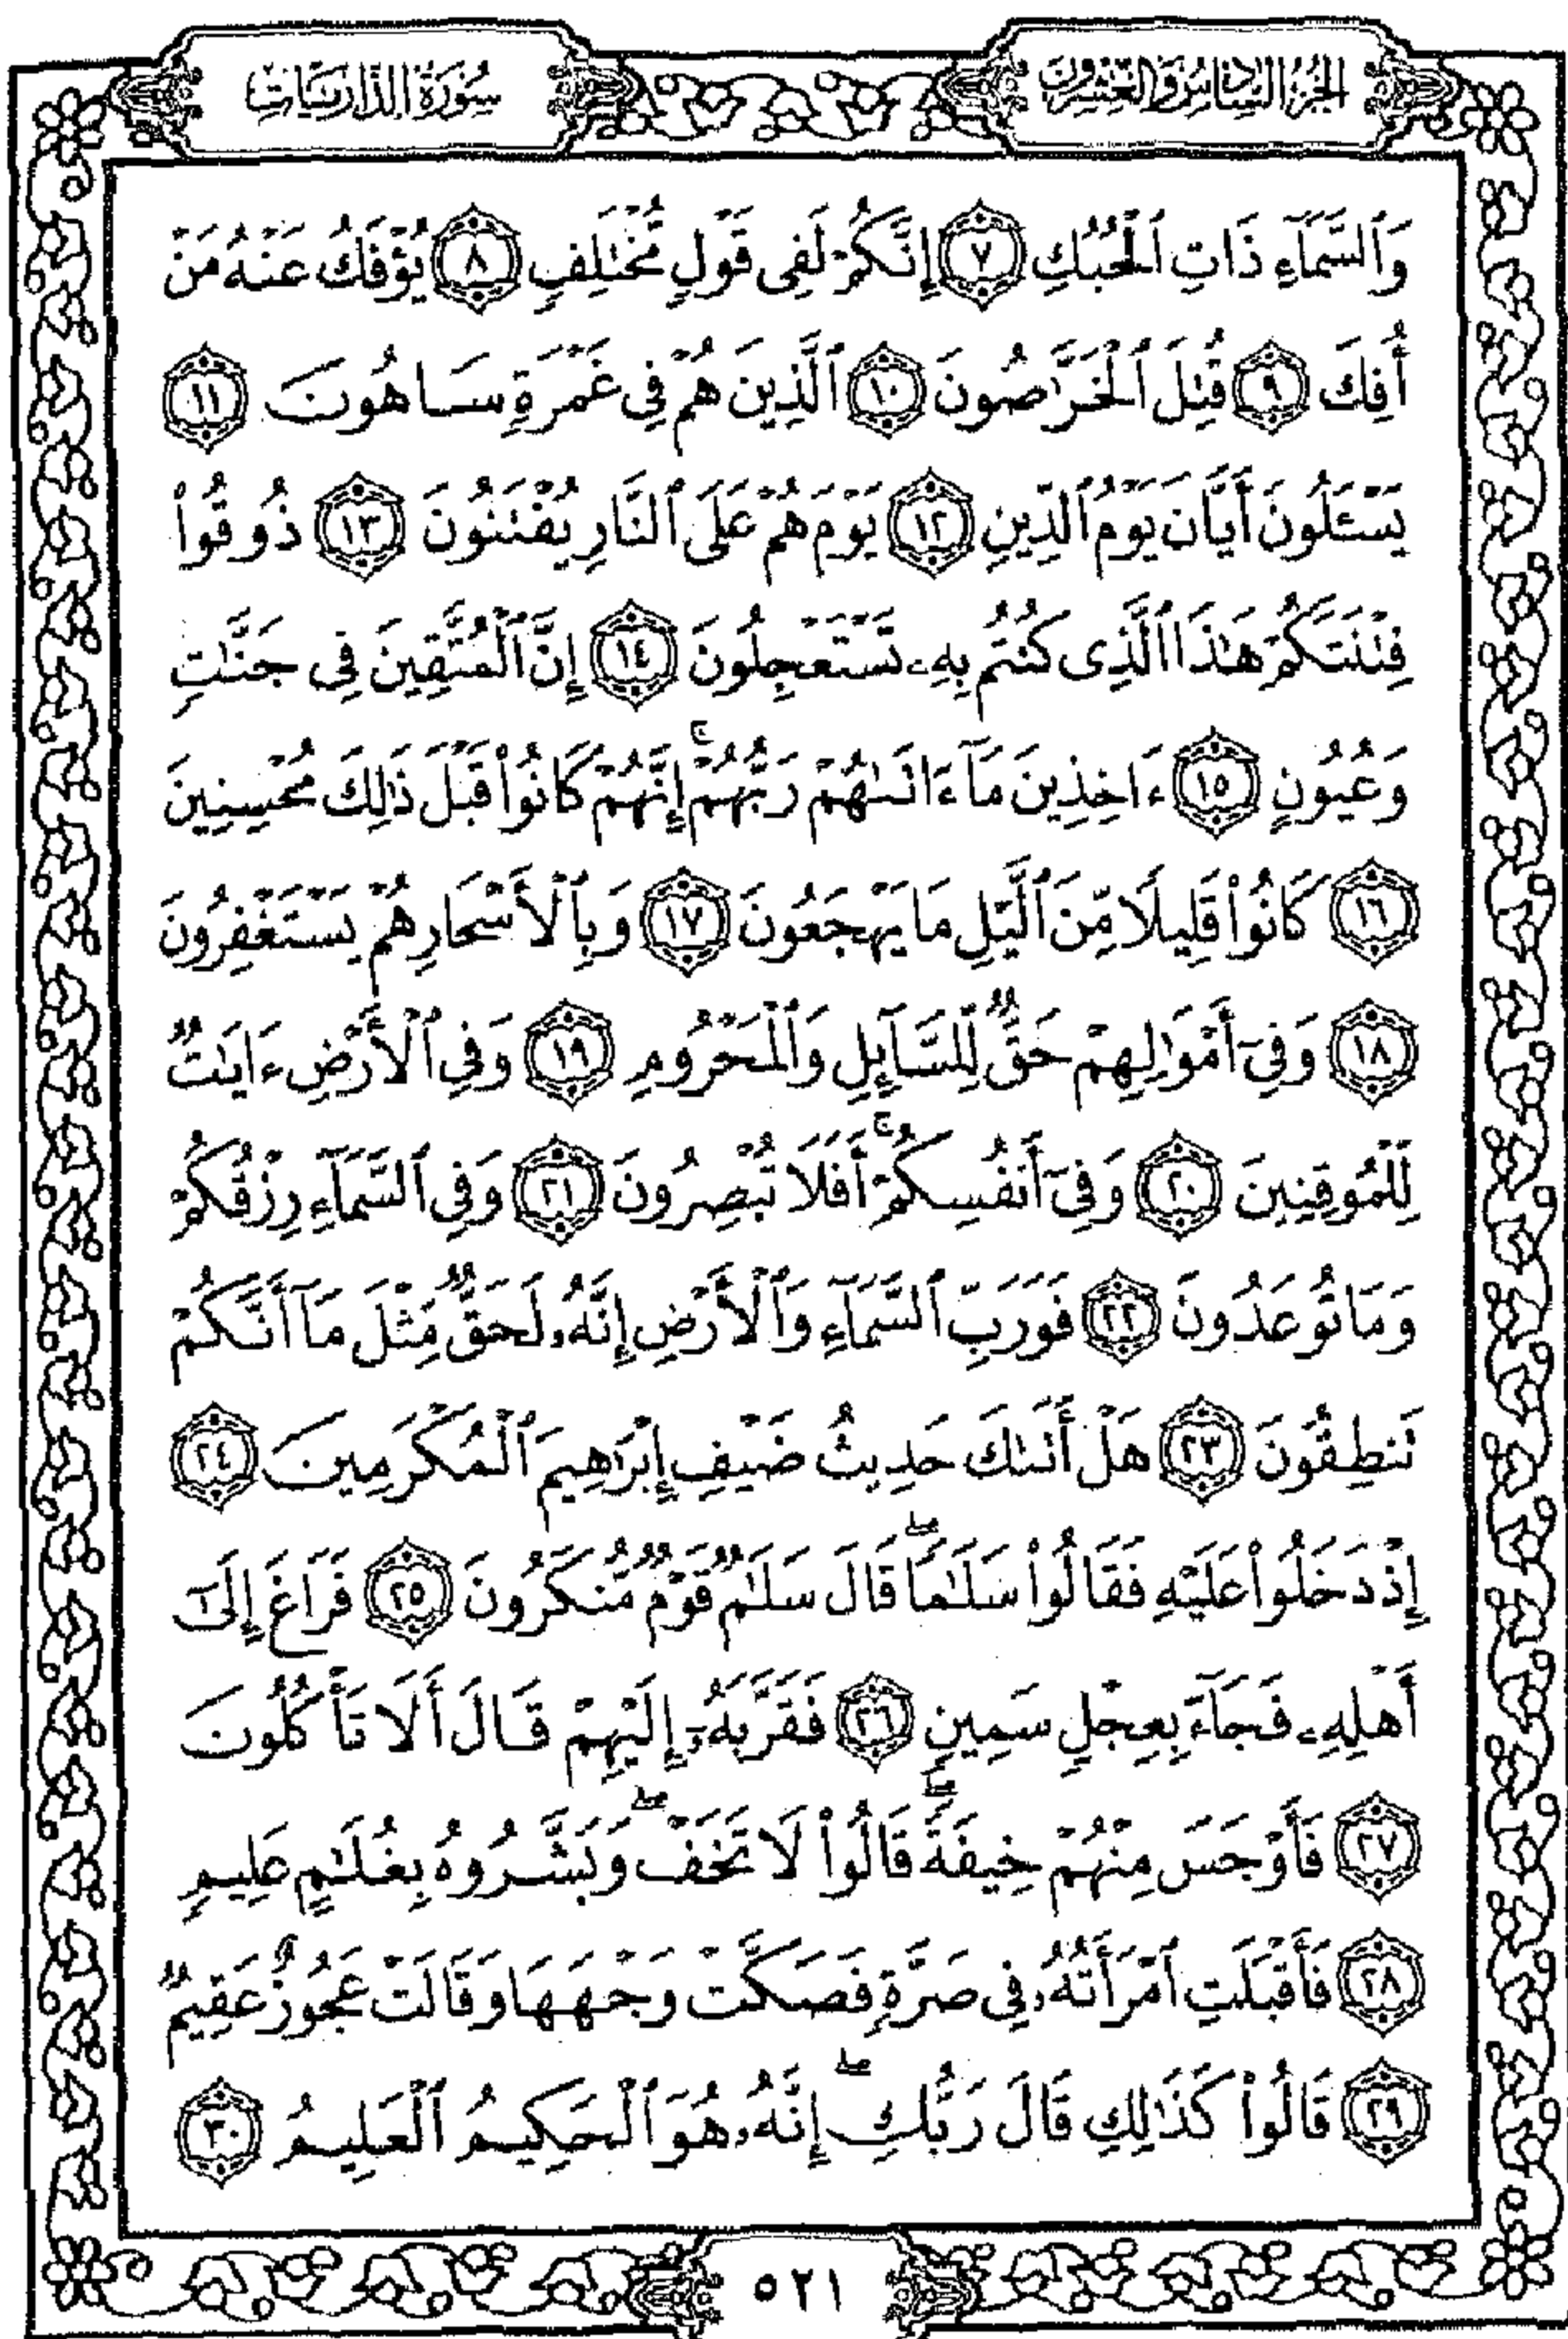 الجزء السادس والعشرون
سورة الذاريات
وَٱلسَّمَآءِ ذَاتِ ٱلْحُبُكِ ٧ إِنَّكُمْ لَفِى قَوْلٍ مُّخْتَلِفٍ ٨ يُؤْفَكُ عَنْهُ مَنْ
أُفِكَ ٩ قُتِلَ ٱلْخَرَّٰصُونَ ١٠ ٱلَّذِينَ هُمْ فِى غَمْرَةٍ سَاهُونَ ١١
يَسْـَٔلُونَ أَيَّانَ يَوْمُ ٱلدِّينِ ١٢ يَوْمَ هُمْ عَلَى ٱلنَّارِ يُفْتَنُونَ ١٣ ذُوقُوا۟
فِتْنَتَكُمْ هَٰذَا ٱلَّذِى كُنتُم بِهِۦ تَسْتَعْجِلُونَ ١٤ إِنَّ ٱلْمُتَّقِينَ فِى جَنَّٰتٍ
وَعُيُونٍ ١٥ ءَاخِذِينَ مَآ ءَاتَىٰهُمْ رَبُّهُمْ ۚ إِنَّهُمْ كَانُوا۟ قَبْلَ ذَٰلِكَ مُحْسِنِينَ
١٦ كَانُوا۟ قَلِيلًا مِّنَ ٱلَّيْلِ مَا يَهْجَعُونَ ١٧ وَبِٱلْأَسْحَارِ هُمْ يَسْتَغْفِرُونَ
١٨ وَفِىٓ أَمْوَٰلِهِمْ حَقٌّ لِّلسَّآئِلِ وَٱلْمَحْرُومِ ١٩ وَفِى ٱلْأَرْضِ ءَايَٰتٌ
لِّلْمُوقِنِينَ ٢٠ وَفِىٓ أَنفُسِكُمْ ۚ أَفَلَا تُبْصِرُونَ ٢١ وَفِى ٱلسَّمَآءِ رِزْقُكُمْ
وَمَا تُوعَدُونَ ٢٢ فَوَرَبِّ ٱلسَّمَآءِ وَٱلْأَرْضِ إِنَّهُۥ لَحَقٌّ مِّثْلَ مَآ أَنَّكُمْ
تَنطِقُونَ ٢٣ هَلْ أَتَىٰكَ حَدِيثُ ضَيْفِ إِبْرَٰهِيمَ ٱلْمُكْرَمِينَ ٢٤
إِذْ دَخَلُوا۟ عَلَيْهِ فَقَالُوا۟ سَلَٰمًا ۖ قَالَ سَلَٰمٌ قَوْمٌ مُّنكَرُونَ ٢٥ فَرَاغَ إِلَىٰٓ
أَهْلِهِۦ فَجَآءَ بِعِجْلٍ سَمِينٍ ٢٦ فَقَرَّبَهُۥٓ إِلَيْهِمْ قَالَ أَلَا تَأْكُلُونَ
٢٧ فَأَوْجَسَ مِنْهُمْ خِيفَةً ۖ قَالُوا۟ لَا تَخَفْ ۖ وَبَشَّرُوهُ بِغُلَٰمٍ عَلِيمٍ
٢٨ فَأَقْبَلَتِ ٱمْرَأَتُهُۥ فِى صَرَّةٍ فَصَكَّتْ وَجْهَهَا وَقَالَتْ عَجُوزٌ عَقِيمٌ
٢٩ قَالُوا۟ كَذَٰلِكِ قَالَ رَبُّكِ ۖ إِنَّهُۥ هُوَ ٱلْحَكِيمُ ٱلْعَلِيمُ ٣٠
٥٢١